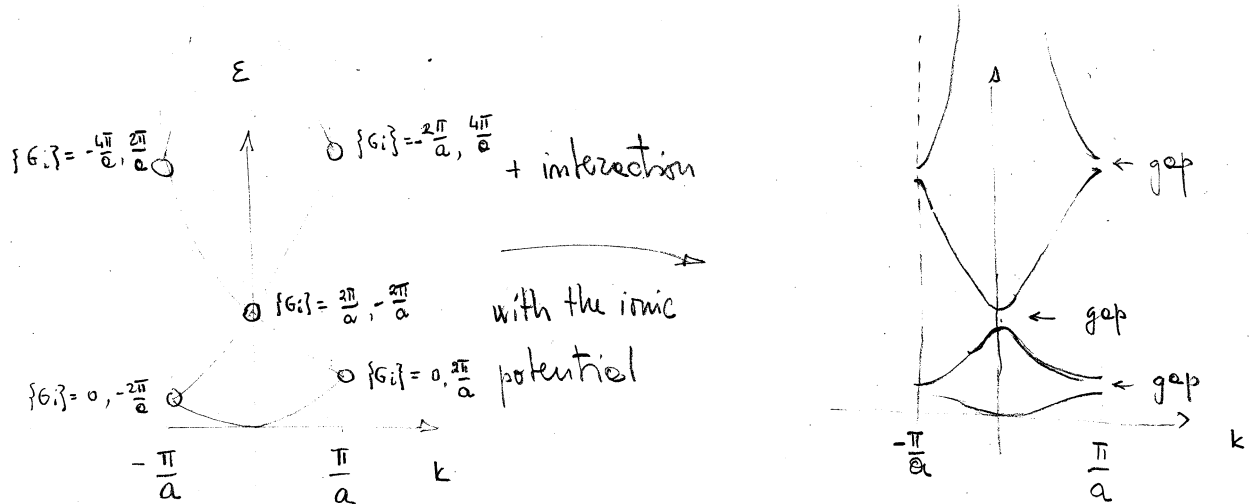 ε
{Gi} = -4π/a, 2π/a
{Gi} = -2π/a, 4π/a
+ interaction
{Gi} = 2π/a, -2π/a
with the ionic
{Gi} = 0, 2π/a
potential
{Gi} = 0, -2π/a
-π/a
π/a
k
← gap
← gap
← gap
-π/a
π/a
k